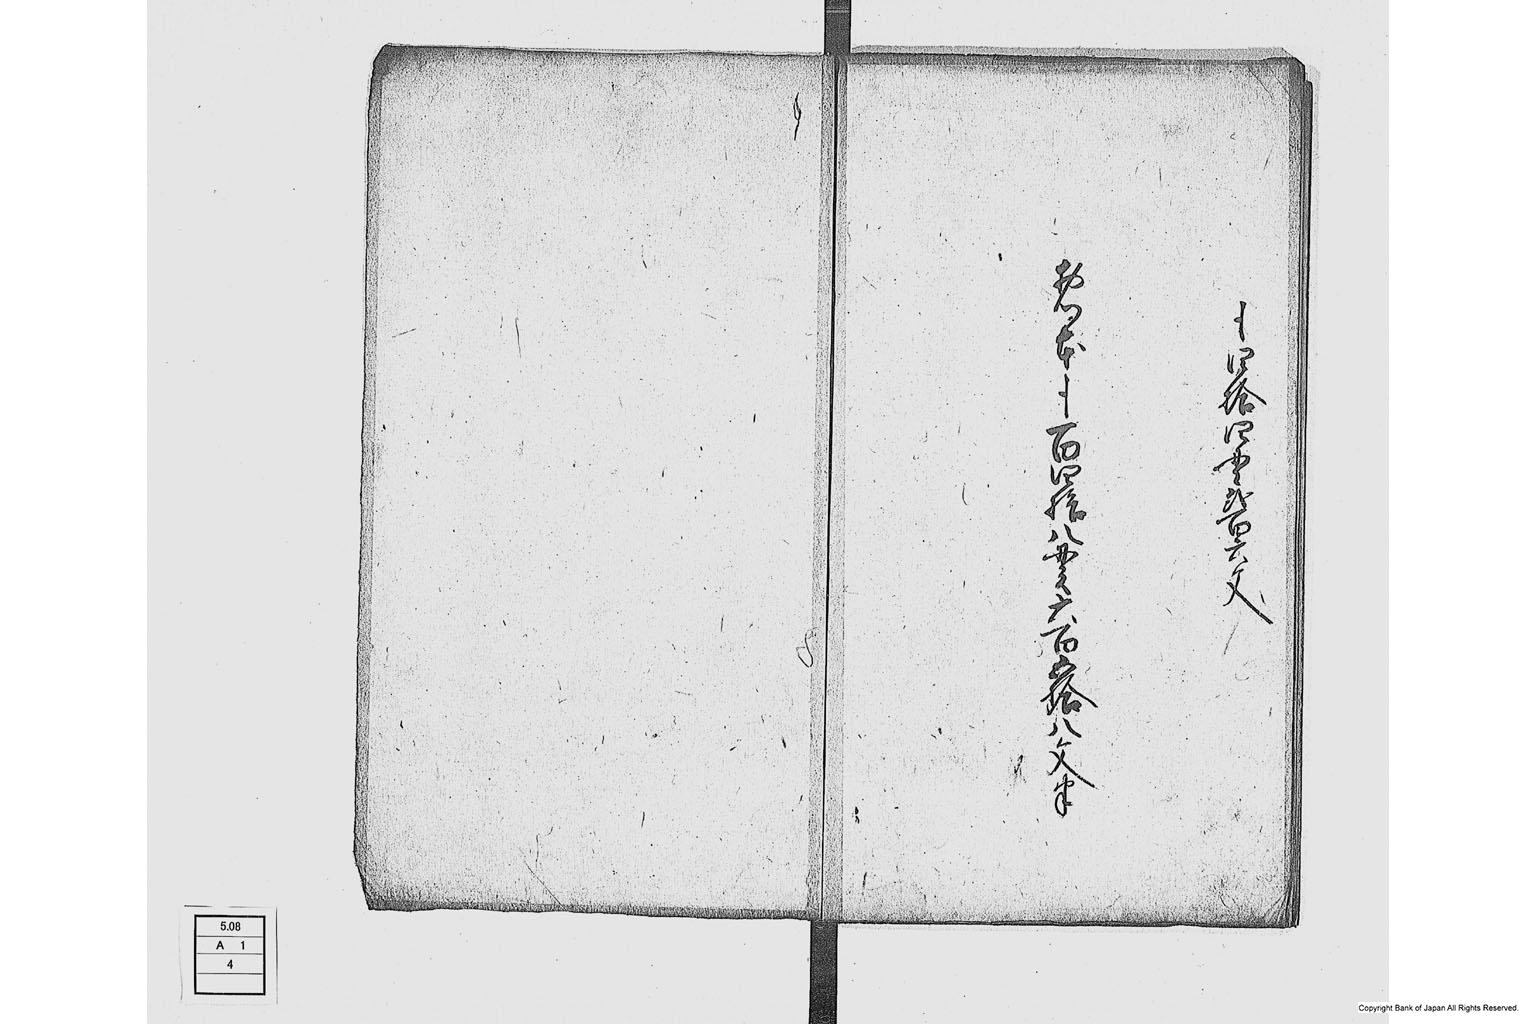 〆四拾四貫弐百六文
〆百四拾八貫六百五拾八文
5.08
A 1
4
Copyright Bank of Japan All Rights Reserved.